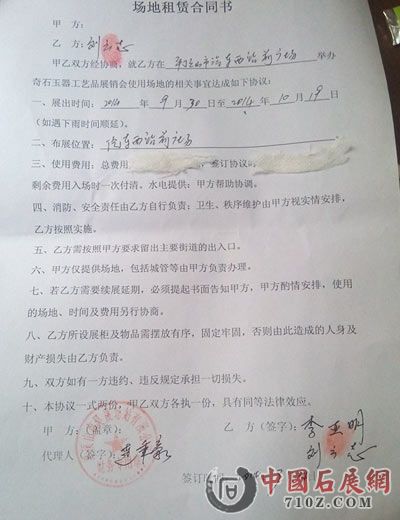 场地租赁合同书
甲 方：
乙 方：刘立志
甲乙双方经协商，就乙方在 举办
奇石玉器工艺品展销会使用场地的相关事宜达成如下协议：
一、展出时间：2014 年 9 月 30 日至 2014 年 10 月 19 日
（如遇下雨时间顺延）。
二、布展位置：
三、使用费用：总费用 签订协议时
剩余费用入场时一次付清，水电提供：甲方帮助协调。
四、消防、安全责任由乙方自行负责；卫生、秩序维护由甲方视实情安排，
乙方按照实施。
五、乙方需按照甲方要求留出主要街道的出入口。
六、甲方仅提供场地，包括城管等由甲方负责办理。
七、若乙方需要续展延期，必须提起书面告知甲方，甲方酌情安排，使用
的场地、时间及费用另行协商。
八、乙方所设展柜及物品需摆放有序，固定牢固，否则由此造成的人身及
财产损失由乙方负责。
九、双方如有一方违约、违反规定承担一切损失。
十、本协议一式两份，甲乙双方各执一份，具有同等法律效应。
甲 方：（盖章）： 乙 方（签字）：李亚明
刘立志
代理人（签字）：
签订日期
中國石展網
710Z.COM